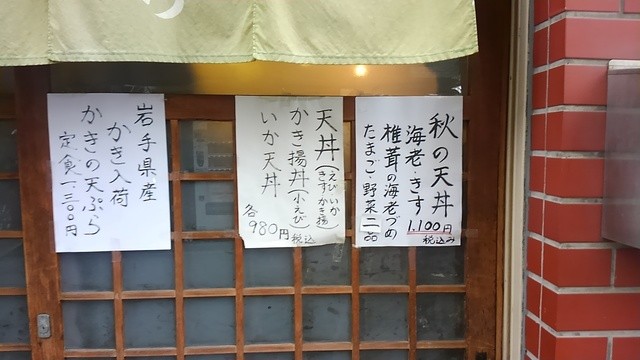 秋の天丼
海老・きす
1.100円
税込み
椎茸の海老づめ
たまご・野菜二品
天丼(えび いか きす かき揚)
かき揚丼(小えび)
いか天丼
各980円税込
岩手県産
かき入荷
かきの天ぷら
定食一、三〇〇円